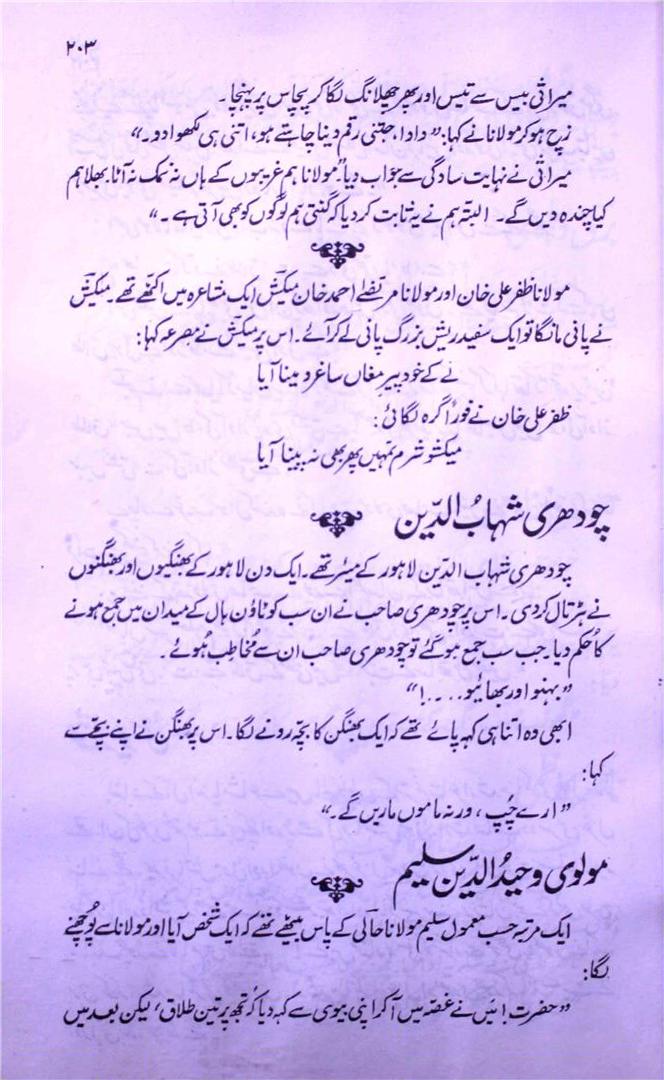 ۲۰۳
میراثی بیس سے تیس اور پھر چھلانگ لگا کر پچاس پر پہنچا۔
زچ ہو کر مولانا نے کہا: "دادا، جتنی رقم دینا چاہتے ہو، اتنی ہی لکھوا دو۔"
میراثی نے نہایت سادگی سے جواب دیا "مولانا ہم غریبوں کے ہاں نہ نمک نہ آٹا، بھلا ہم
کیا چندہ دیں گے۔ البتہ ہم نے یہ ثابت کر دیا کہ گنتی ہم لوگوں کو بھی آتی ہے۔"
مولانا ظفر علی خان اور مولانا مرتضےٰ احمد خان میکش ایک مشاعرہ میں اکٹھے تھے۔ میکش
نے پانی مانگا تو ایک سفید ریش بزرگ پانی لے کر آئے۔ اس پر میکش نے مصرعہ کہا:
لے کے خود پیر مغاں ساغر و مینا آیا
ظفر علی خان نے فوراً گرہ لگائی:
میکشو شرم تمہیں پھر بھی نہ پینا آیا
چودھری شہابُ الدّین
چودھری شہاب الدّین لاہور کے میئر تھے۔ ایک دن لاہور کے بھنگیوں اور بھنگنوں
نے ہڑتال کر دی۔ اس پر چودھری صاحب نے ان سب کو ٹاؤن ہال کے میدان میں جمع ہونے
کا حُکم دیا۔ جب سب جمع ہو گئے تو چودھری صاحب ان سے مُخاطب ہُوئے۔
"بہنو اور بھائیو . . . !"
ابھی وہ اتنا ہی کہہ پائے تھے کہ ایک بھنگن کا بچّہ رونے لگا۔ اس پر بھنگن نے اپنے بچّے سے
کہا:
"ارے چُپ، ورنہ ماموں ماریں گے۔"
مولوی وحیدُ الدّین سلیم
ایک مرتبہ حسب معمول سلیم مولانا حالی کے پاس بیٹھے تھے کہ ایک شخص آیا اور مولانا سے پُوچھنے
لگا:
"حضرت! میں نے غصّہ میں آ کر اپنی بیوی سے کہہ دیا کہ تُجھ پر تین طلاق، لیکن بعد میں